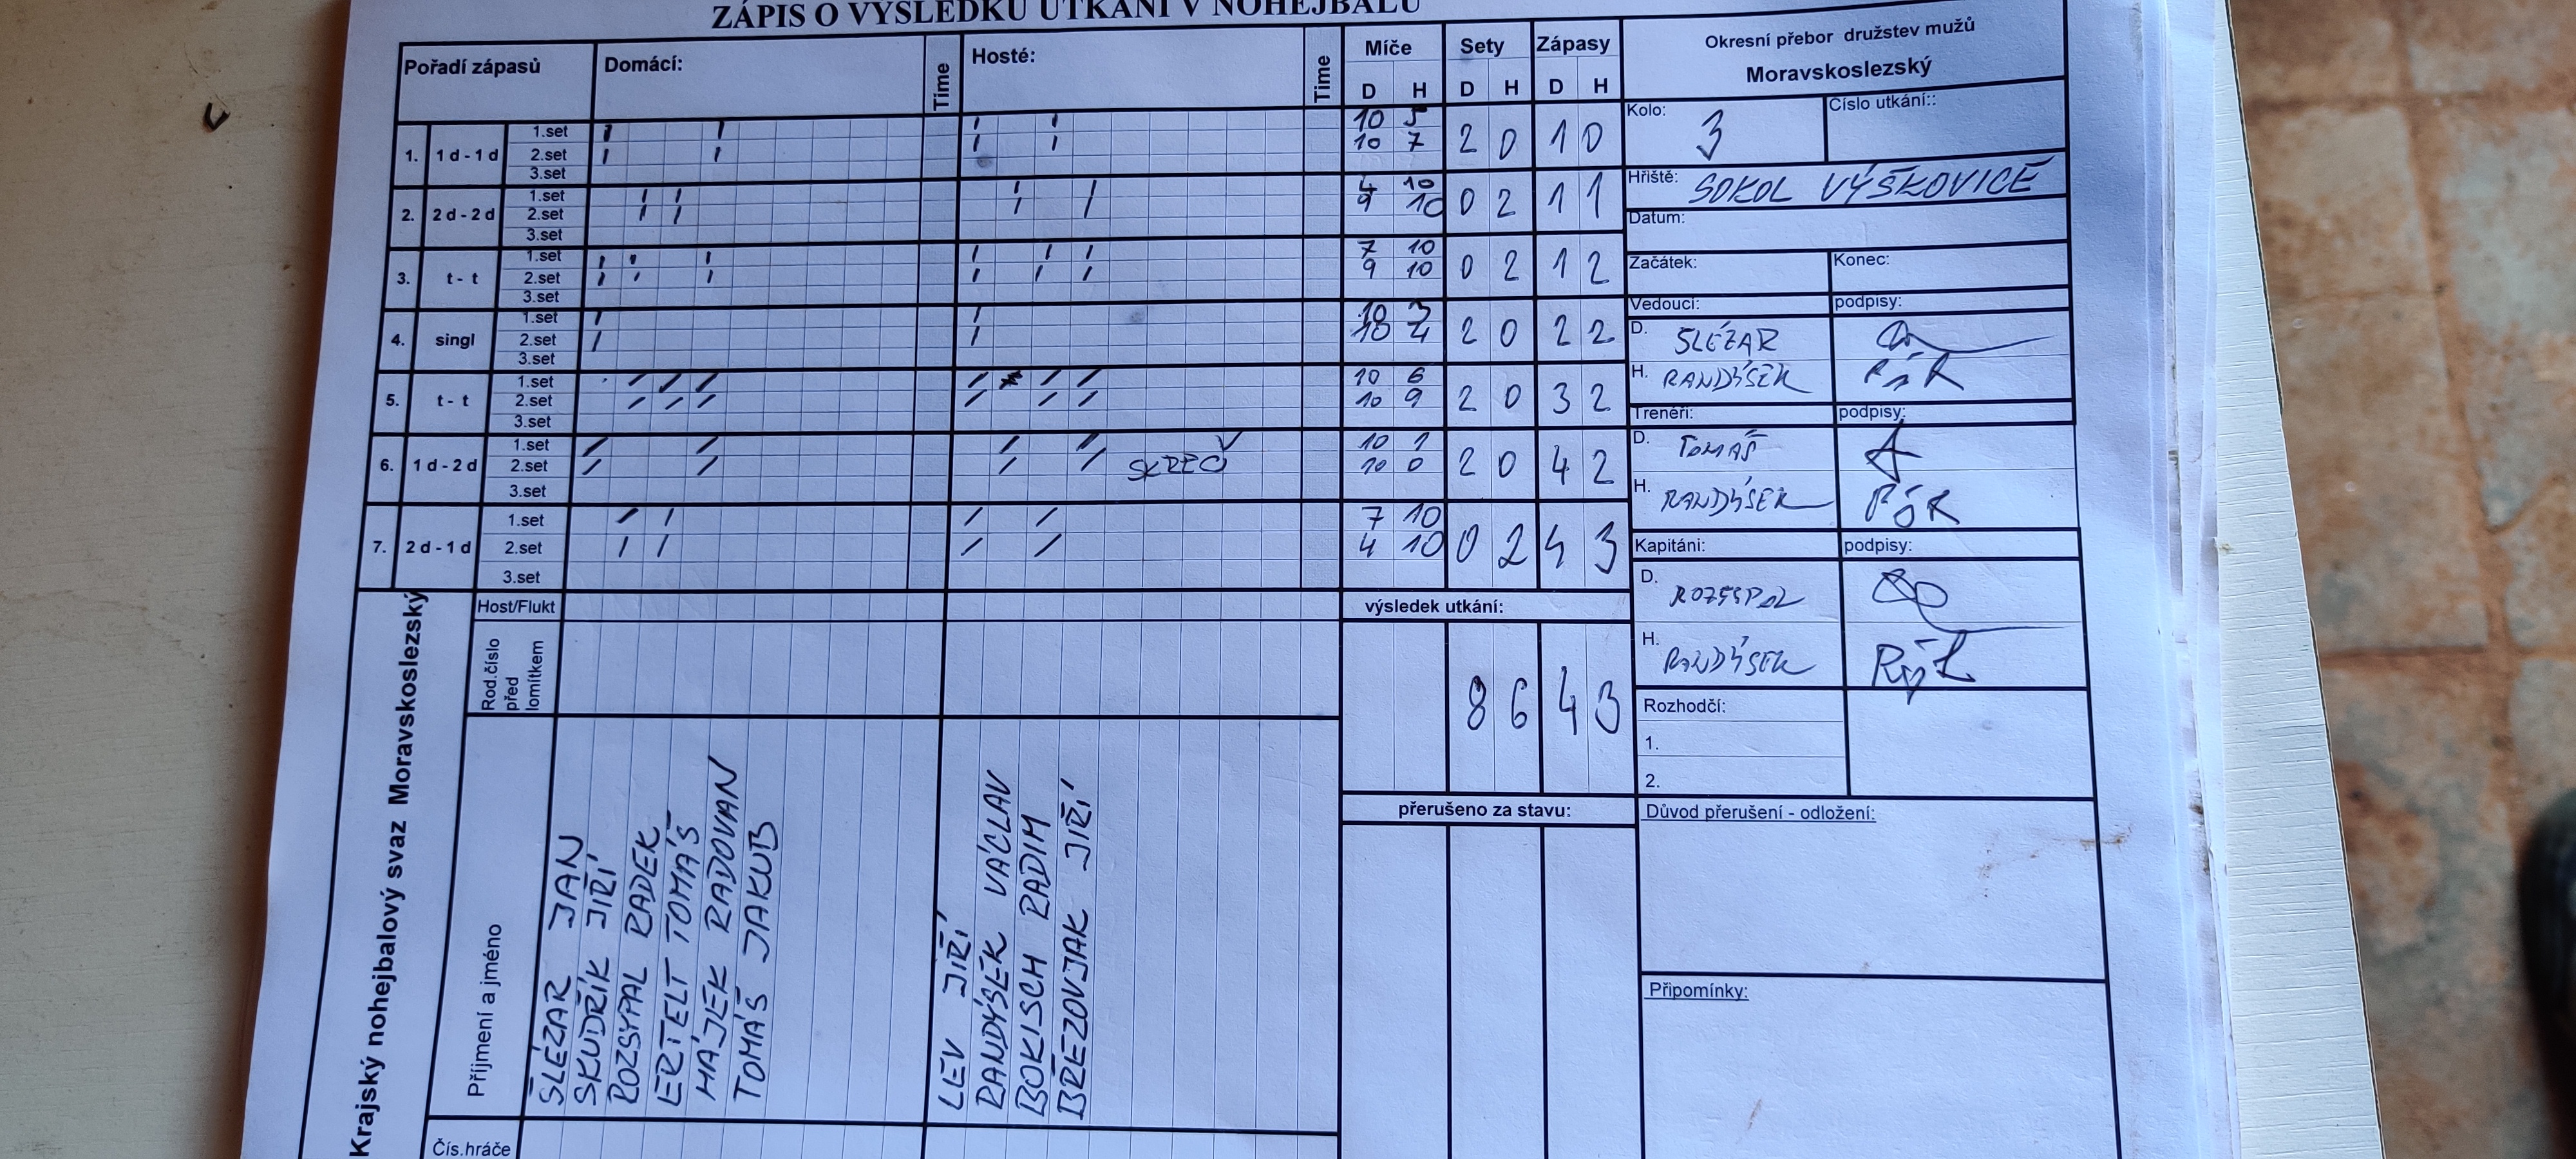 ZÁPIS O VÝSLEDKU UTKÁNÍ V NOHEJBALU
Pořadí zápasů Domácí: Time Hosté: Time Míče Sety Zápasy
D H D H D H
Okresní přebor družstev mužů
Moravskoslezský
Kolo: 3 Číslo utkání::
Hřiště: SOKOL VÝŠKOVICE
Datum:
Začátek: Konec:
Vedoucí: podpisy:
D. SLÉZAR
H. RANDÝSEK
Trenéři: podpisy:
D. TOMÁŠ
H. RANDÝSEK
Kapitáni: podpisy:
D.
H. RANDÝSEK
Rozhodčí:
1.
2.
Důvod přerušení - odložení:
Připomínky:
1. 1 d - 1 d 1.set 10 5
2.set 10 7 2 0 1 0
3.set
2. 2 d - 2 d 1.set 4 10
2.set 9 10 0 2 1 1
3.set
3. t - t 1.set 7 10
2.set 9 10 0 2 1 2
3.set
4. singl 1.set 10 3
2.set 10 4 2 0 2 2
3.set
5. t - t 1.set 10 6
2.set 10 9 2 0 3 2
3.set
6. 1 d - 2 d 1.set 10 1
2.set SKREČ 10 0 2 0 4 2
3.set
7. 2 d - 1 d 1.set 7 10
2.set 4 10 0 2 4 3
3.set
Host/Flukt
výsledek utkání:
8 6 4 3
přerušeno za stavu:
Rod.číslo
před
lomítkem
Krajský nohejbalový svaz Moravskoslezský
Příjmení a jméno
ŠLÉZAR JAN
SKUDŘÍK JIŘÍ
ROZSYPAL RADEK
ERTELT TOMÁŠ
HÁJEK RADOVAN
TOMÁŠ JAKUB
LEV JIŘÍ
RANDÝSEK VÁCLAV
BOKISCH RADIM
BŘEZOVJAK JIŘÍ
Čís.hráče